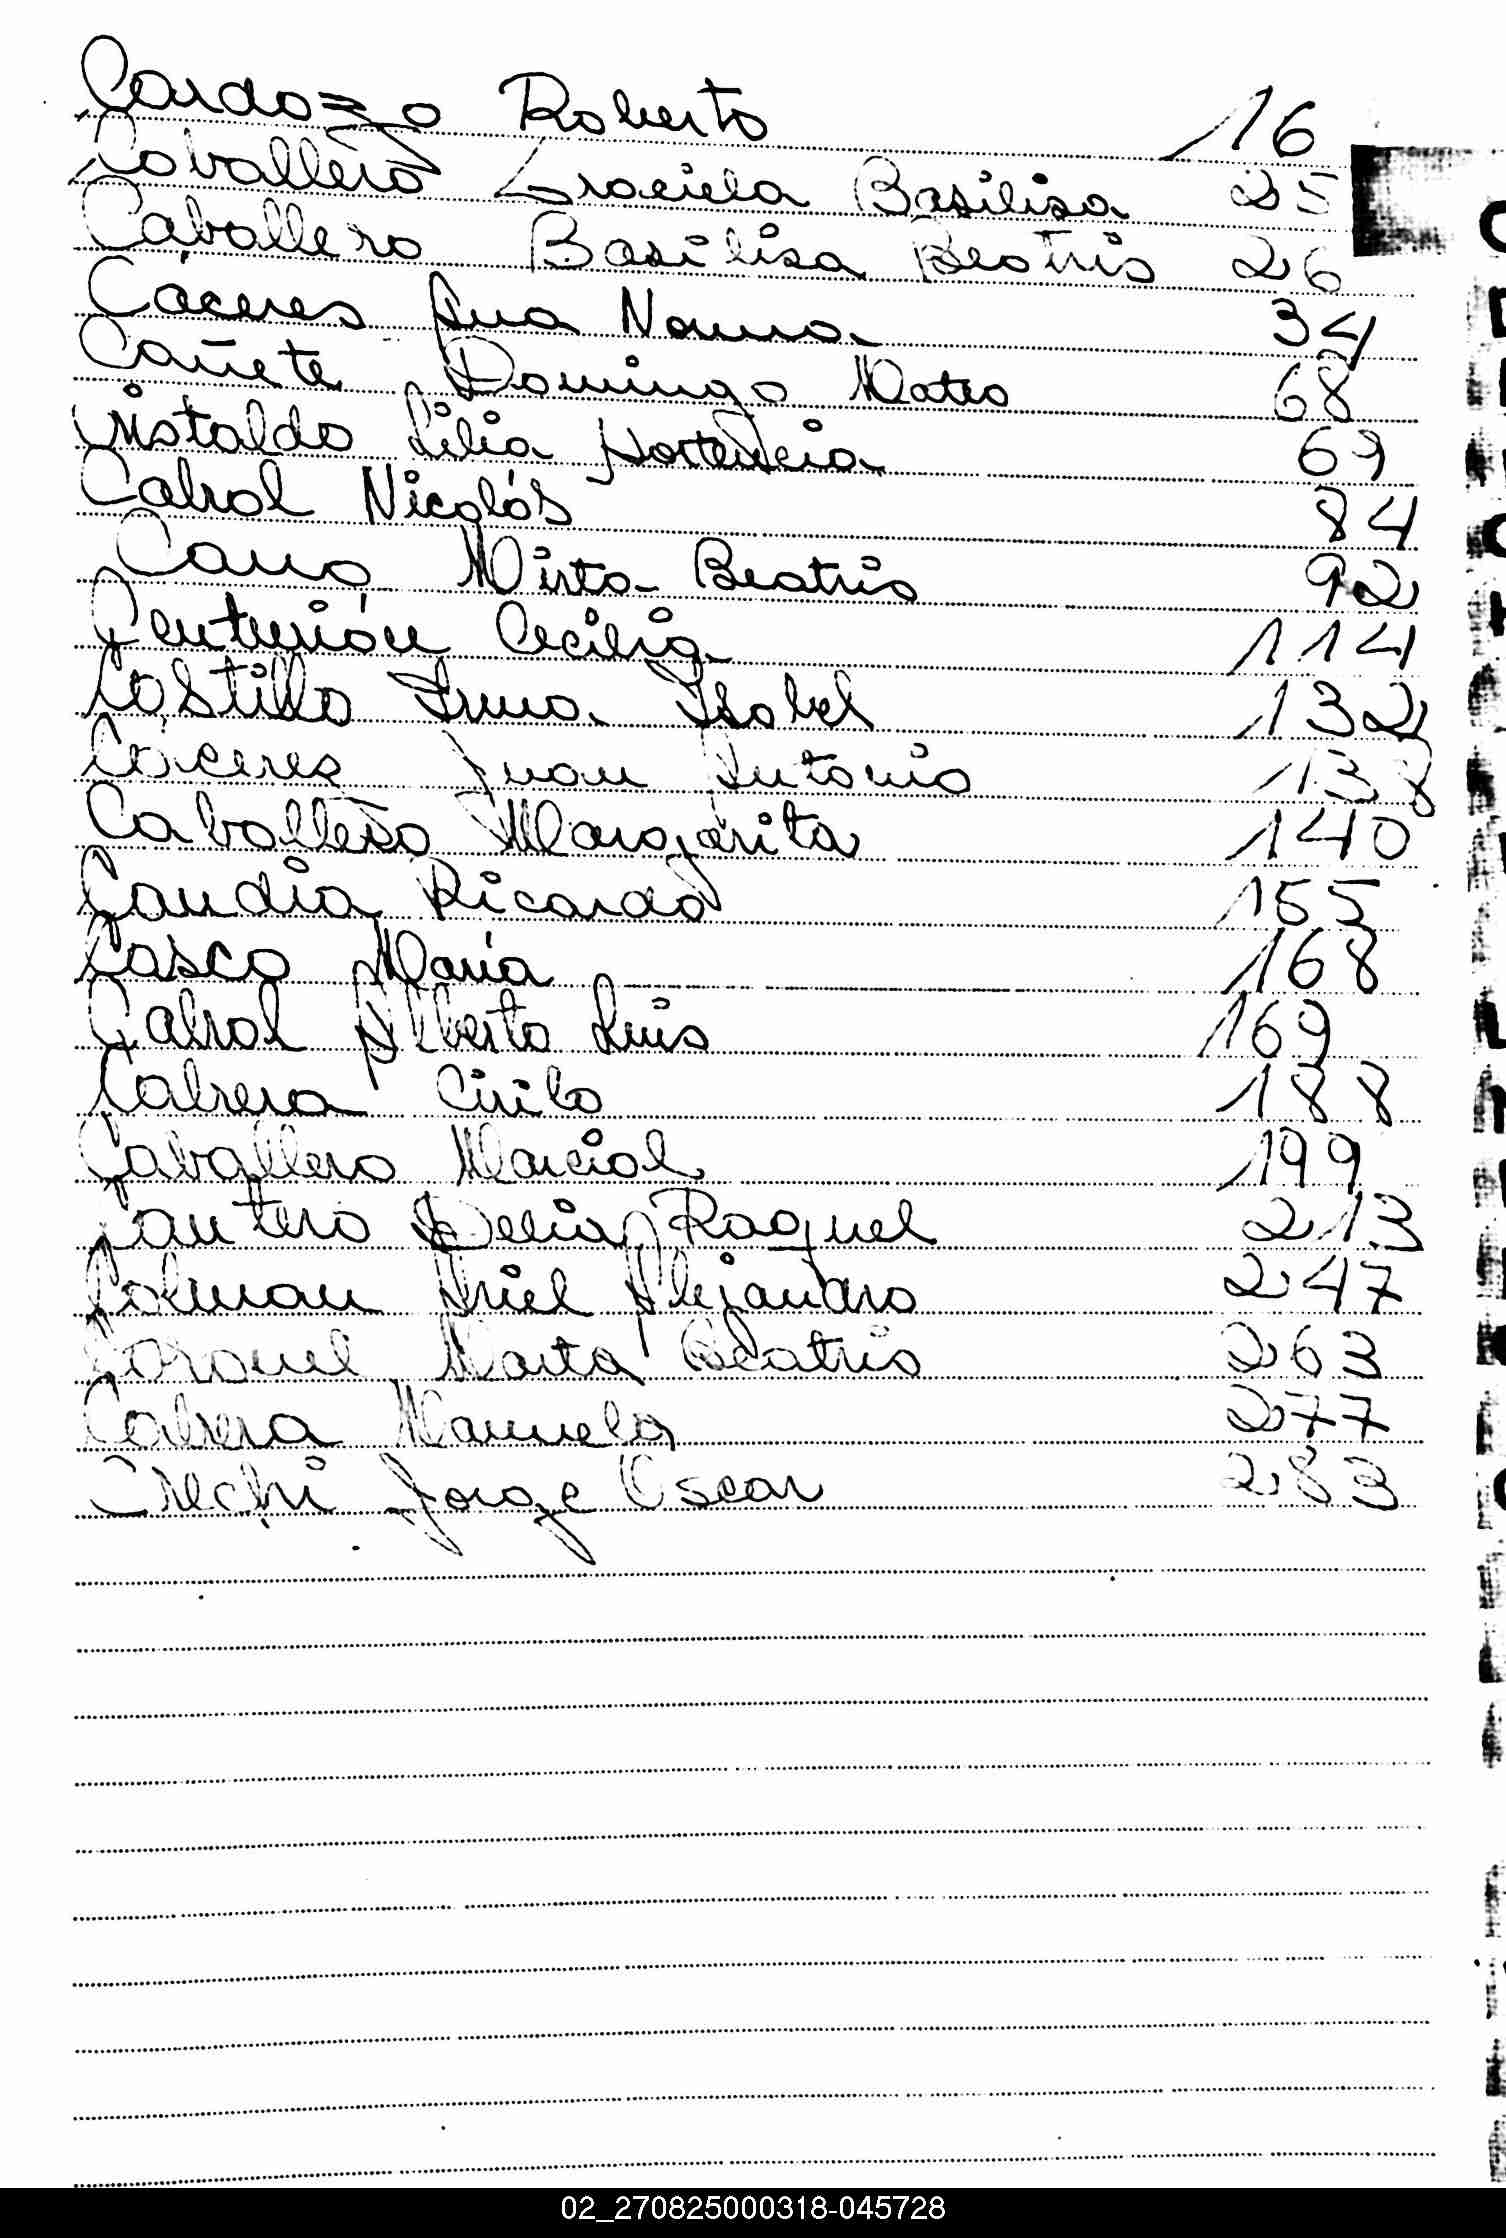 Cardozo Roberto 16
Caballero Graciela Basilisa 25
Caballero Basilisa Beatris 26
Cáceres Ana Norma 34
Cañete Domingo Mateo 68
Cristaldo Lilia Hortencia 69
Cabrol Nicolás 84
Cano Mirta Beatris 92
Centurión Cecilia 114
Costillo Irma Isabel 132
Cáceres Juan Antonio 138
Caballero Margarita 140
Candia Ricardo 155
Casco María 168
Cabrol Alberto Luis 169
Cabrera Cirilo 188
Caballero Marcial 199
Cantero Delia Raquel 213
Colman Ariel Alejandro 247
Coronel Marta Beatris 263
Cabrera Manuela 277
Crechi Jorge Oscar 283
02_270825000318-045728